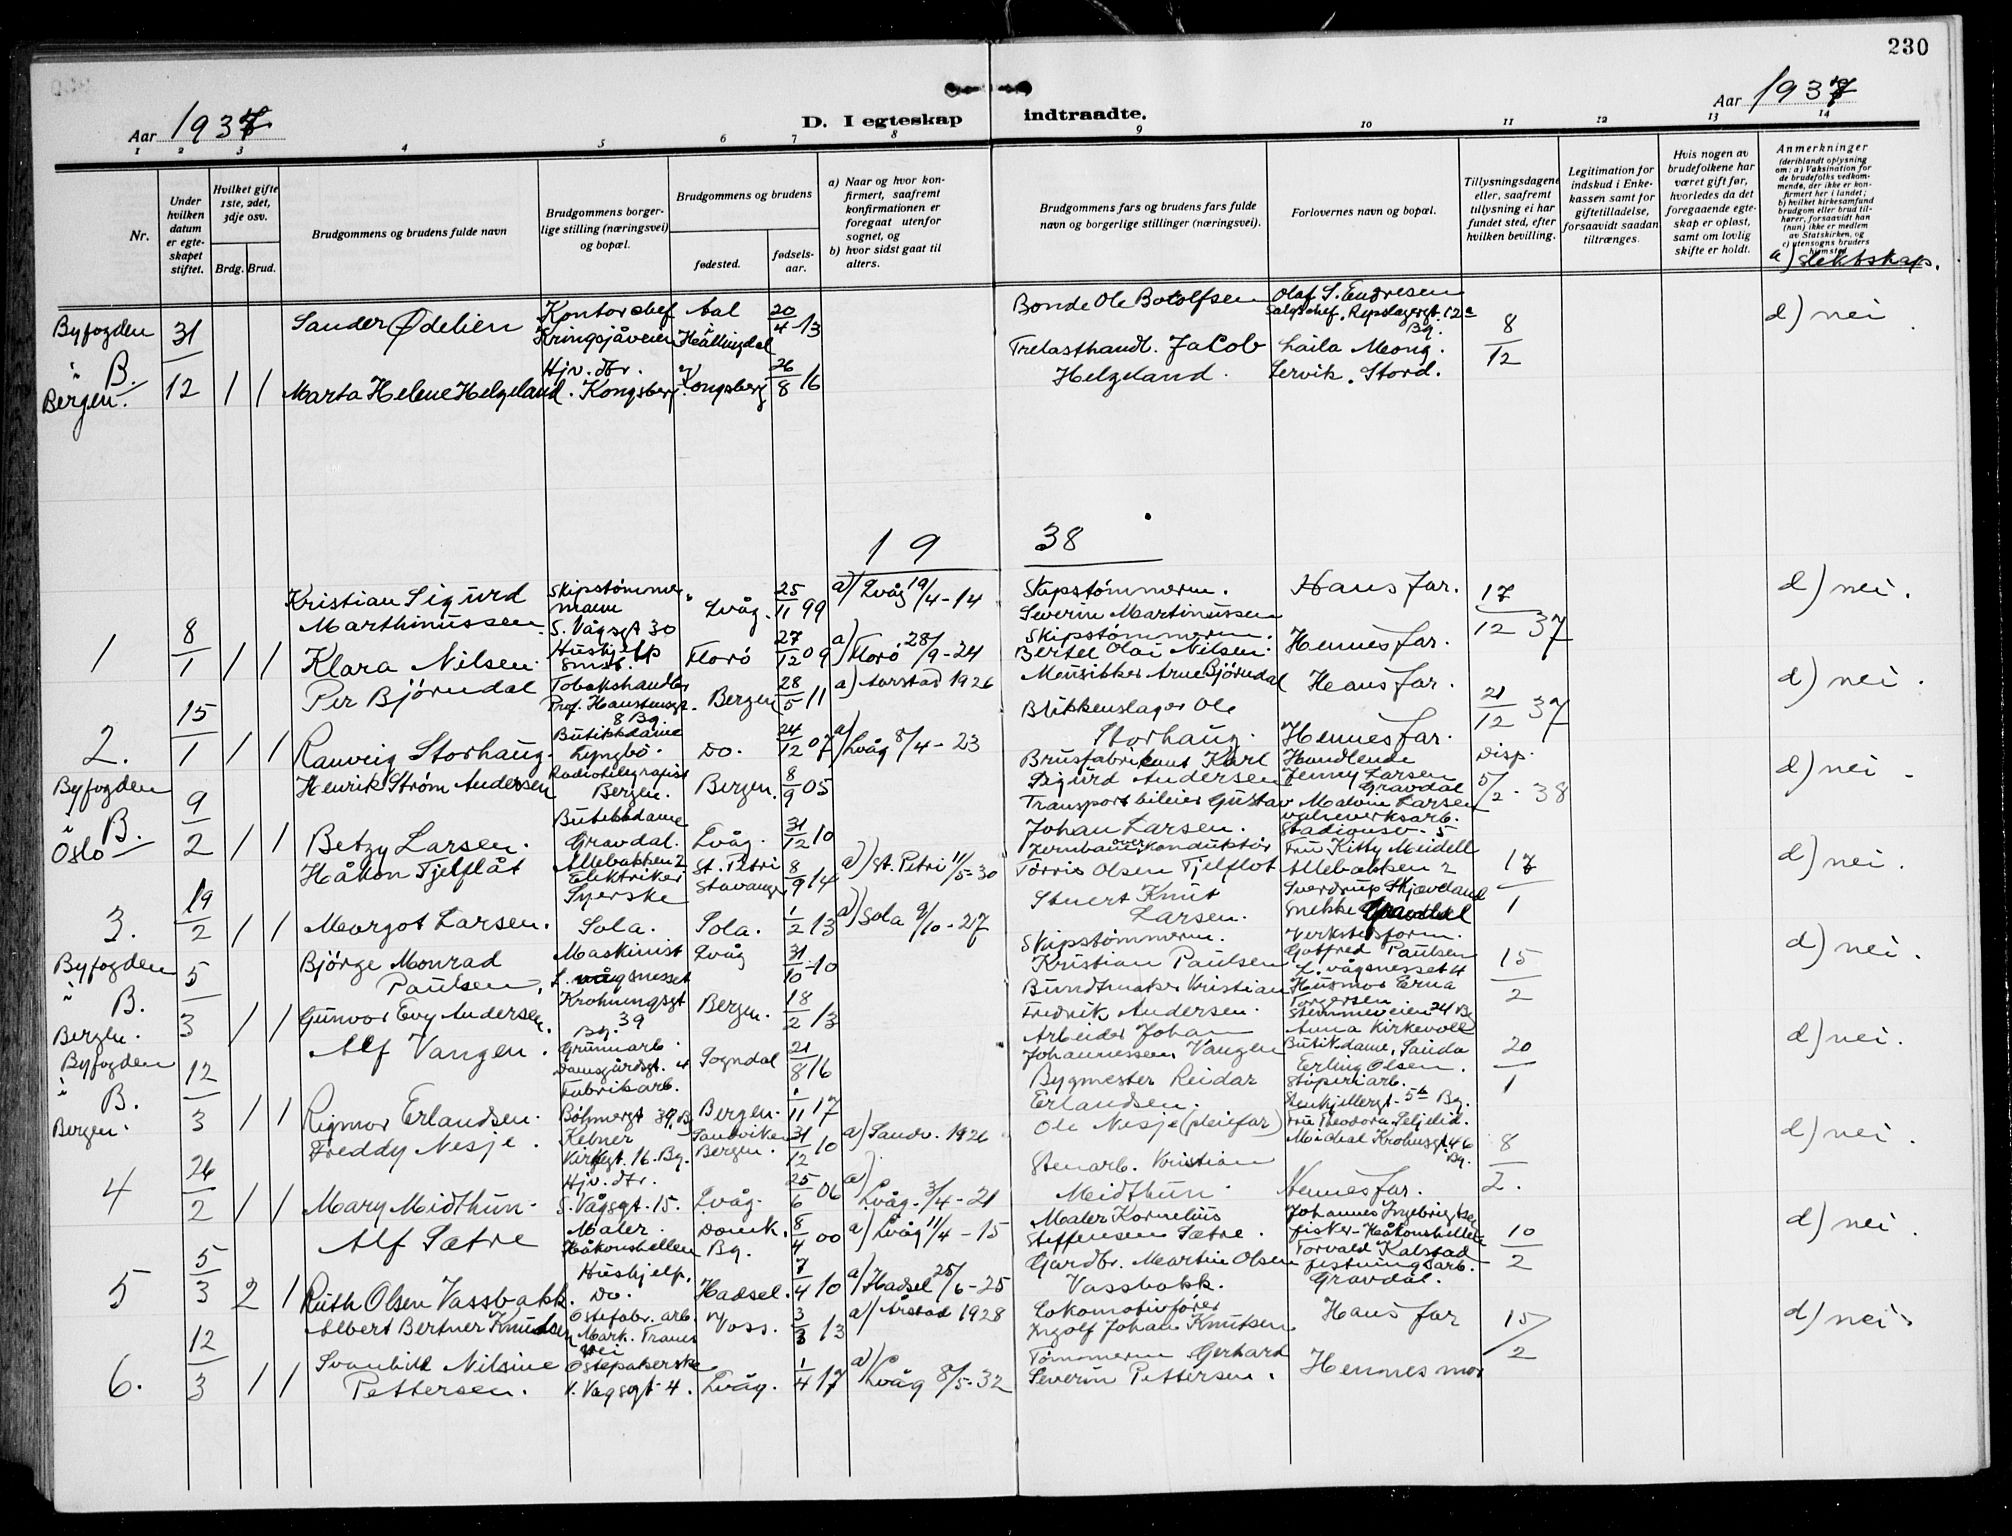 230
Aar 1937
D. I egteskap indtraadte.
Aar 1937
1 2 3 4 5 6 7 8 9 10 11 12 13 14
Nr.
Under hvilken datum er egteskapet stiftet.
Hvilket gifte 1ste, 2det, 3dje osv.
Brdg. Brud.
Brudgommens og brudens fulde navn
Brudgommens borgerlige stilling (næringsvei) og bopæl.
Brudgommens og brudens
fødested.
fødselsaar.
a) Naar og hvor konfirmert, saafremt konfirmationen er foregaat utenfor sognet, og
b) hvor sidst gaat til alters.
Brudgommens fars og brudens fars fulde navn og borgerlige stillinger (næringsvei).
Forlovernes navn og bopæl.
Tillysningsdagene eller, saafremt tillysning ei har fundet sted, efter hvilken bevilling.
Legitimation for indskud i Enkekassen samt for giftetilladelse, forsaavidt saadan tiltrænges.
Hvis nogen av brudefolkene har været gift før, hvorledes da det foregaaende egteskap er opløst, samt om lovlig skifte er holdt.
Anmerkninger
(deriblandt oplysning om: a) Vaksination for de brudefolks vedkommende, der ikke er konfirmert her i landet; b) hvilket kirkesamfund brudgom eller brud tilhører, forsaavidt han (hun) ikke er medlem av Statskirken, og c) utensogns bruders hjemsted
d) slektskap.
Byfogden i B. Bergen. 31/12 1 1
Sander Ødelien Kontorchef Kringsjåveien Aal Hallingdal 20/4-13 Bonde Ole Botolfsen Olaf S. Endresen Salgschef, Repslagergt. 12a Bg. 8/12 d) nei
Marta Helene Helgeland Hjv. dtr. Kongsberg Kongsberg 26/8 16 Trelasthandl. Jakob Helgeland. Laila Meong. Lervik, Stord.
1938
1 8/1 1 1
Kristian Sigurd Marthinussen Skipstømmermann S. Vågsgt 30 Lvåg. 25/11 99 a) Lvåg 19/4-14 Skipstømmerm. Severin Martinussen Hans far. 17/12 37 d) nei.
Klara Nilsen. Hushjelp smst. Florö 27/12 09 a) Florö 28/9-24 Skipstømmerm. Bertel Olai Nilsen. Hennes far.
2. 15/1 1 1
Per Björndal Tobakshandler Prof. Hanstensgt. 8 Bg. Bergen 28/5 11 a) Aarstad 1926 Meusikker Arne Björndal Hans far. 21/12 37 d) nei.
Ranveig Storhaug. Butikkdame Lyngbö. Do. 24/12 07 a) Lvåg 8/4-23 Blikkenslager Ole Storhaug. Hennes far.
Byfogden i B. Oslo 9/2 1 1
Henrik Strøm Andersen Radiotelegrafist Bergen. Bergen. 8/9 05 Brusfabrikant Karl Sigurd Andersen Handlende Jenny Larsen Gravdal Disp. 5/2-38 d) nei
Betzy Larsen. Butikkdame Gravdal. Lvåg. 31/12 10 Transportbileier Gustav Johan Larsen. Malvin Larsen valseverksarb. Stadionsv. 5
3. 19/2 1 1
Håkon Tjelflåt Allebakken 2 Elektriker St. Petri Stavanger 8/9 14 a) St. Petri 11/5-30 Jernbaneoverkonduktör Törris Olsen Tjelflot Fru Kitty Meidell Allebakken 2 17/1 d) nei.
Margot Larsen. Syerske Sola. Sola. 1/2 13 a) Sola 9/10-27 Stuert Knut Larsen. Sverdrup Skjæveland Snekker Gravdal
Byfogden i B. Bergen. 5/3 1 1
Björge Monrad Paulsen. Maskinist L. vågsnesset Lvåg 31/10-10 Skipstömmerm. Kristian Paulsen Verkstedsform. Gotfred Paulsen L. vågsnesset 4 15/2 d) nei.
Gunvor Evy Andersen. Krohnengsgt Bg. 39 Bergen. 18/2 13 Bundtmaker Kristian Fredrik Andersen. Husmor Erna Torgersen Stemmeveien 24 Bg
Byfogden i B. Bergen. 12/3 1 1
Alf Vangen. Grunnarb. Damsgårdsgt. 4 Sogndal 21/8 16 Arbeider Johan Johannessen Vangen Anna Kirkevoll Butikdame, Sauda 20/1 d) nei.
Rigmor Erlandsen. Fabrikarb. Böhmergt 39, Bg Bergen. 1/11 17 Bygmester Reidar Erlandsen. Erling Olsen. Stöperiarb. 5b Bg.
4 26/2 1 1
Freddy Nesje. Kelner Kirkegt. 16. Bg. Sandviken Bergen. 31/12 10 a) Sandv. 1926 Ole Nesje (pleiefar) Fru Theodora Seljelid. Michal Krohnsgt 46 Bg. 8/2. d) nei.
Mary Midthun. Hjv. dtr. S. Vågsgt. 15. Lvåg. 25/6 06 a) Lvåg. 3/4-21 Stenarb. Kristian Meidthun. Hennes far.
5 5/3 2 1
Alf Sætre Maler. Håkonshellen Domk. Bg. 8/4 00 a) Lvåg 11/4-15 Maler Kornelius Steffensen Sætre. Johannes Ingebrigtsen fisker-Håkonshellen 10/2 d) nei.
Ruth Olsen Vassbakk. Hushjelp. Do. Hadsel. 7/4 10 a) Hadsel 25/6-25 Gardbr. Martin Olsen Vassbakk. Torvald Kalstad Gravdal.
6. 12/3 1 1
Albert Bertner Knudsen Ostefabr. arb. Mark. Tranes vei Voss. 3/3 13 a) Årstad 1928 Lokomotivförer Ingolf Johan Knutsen Hans far 15/2 d) nei.
Svanhild Nilsine Pettersen. Ostepakerske V. Vågsgt 4. Lvåg. 1/4 17 a) Lvåg 8/5-32 Tömmerm. Gerhard Severin Pettersen. Hennes mor